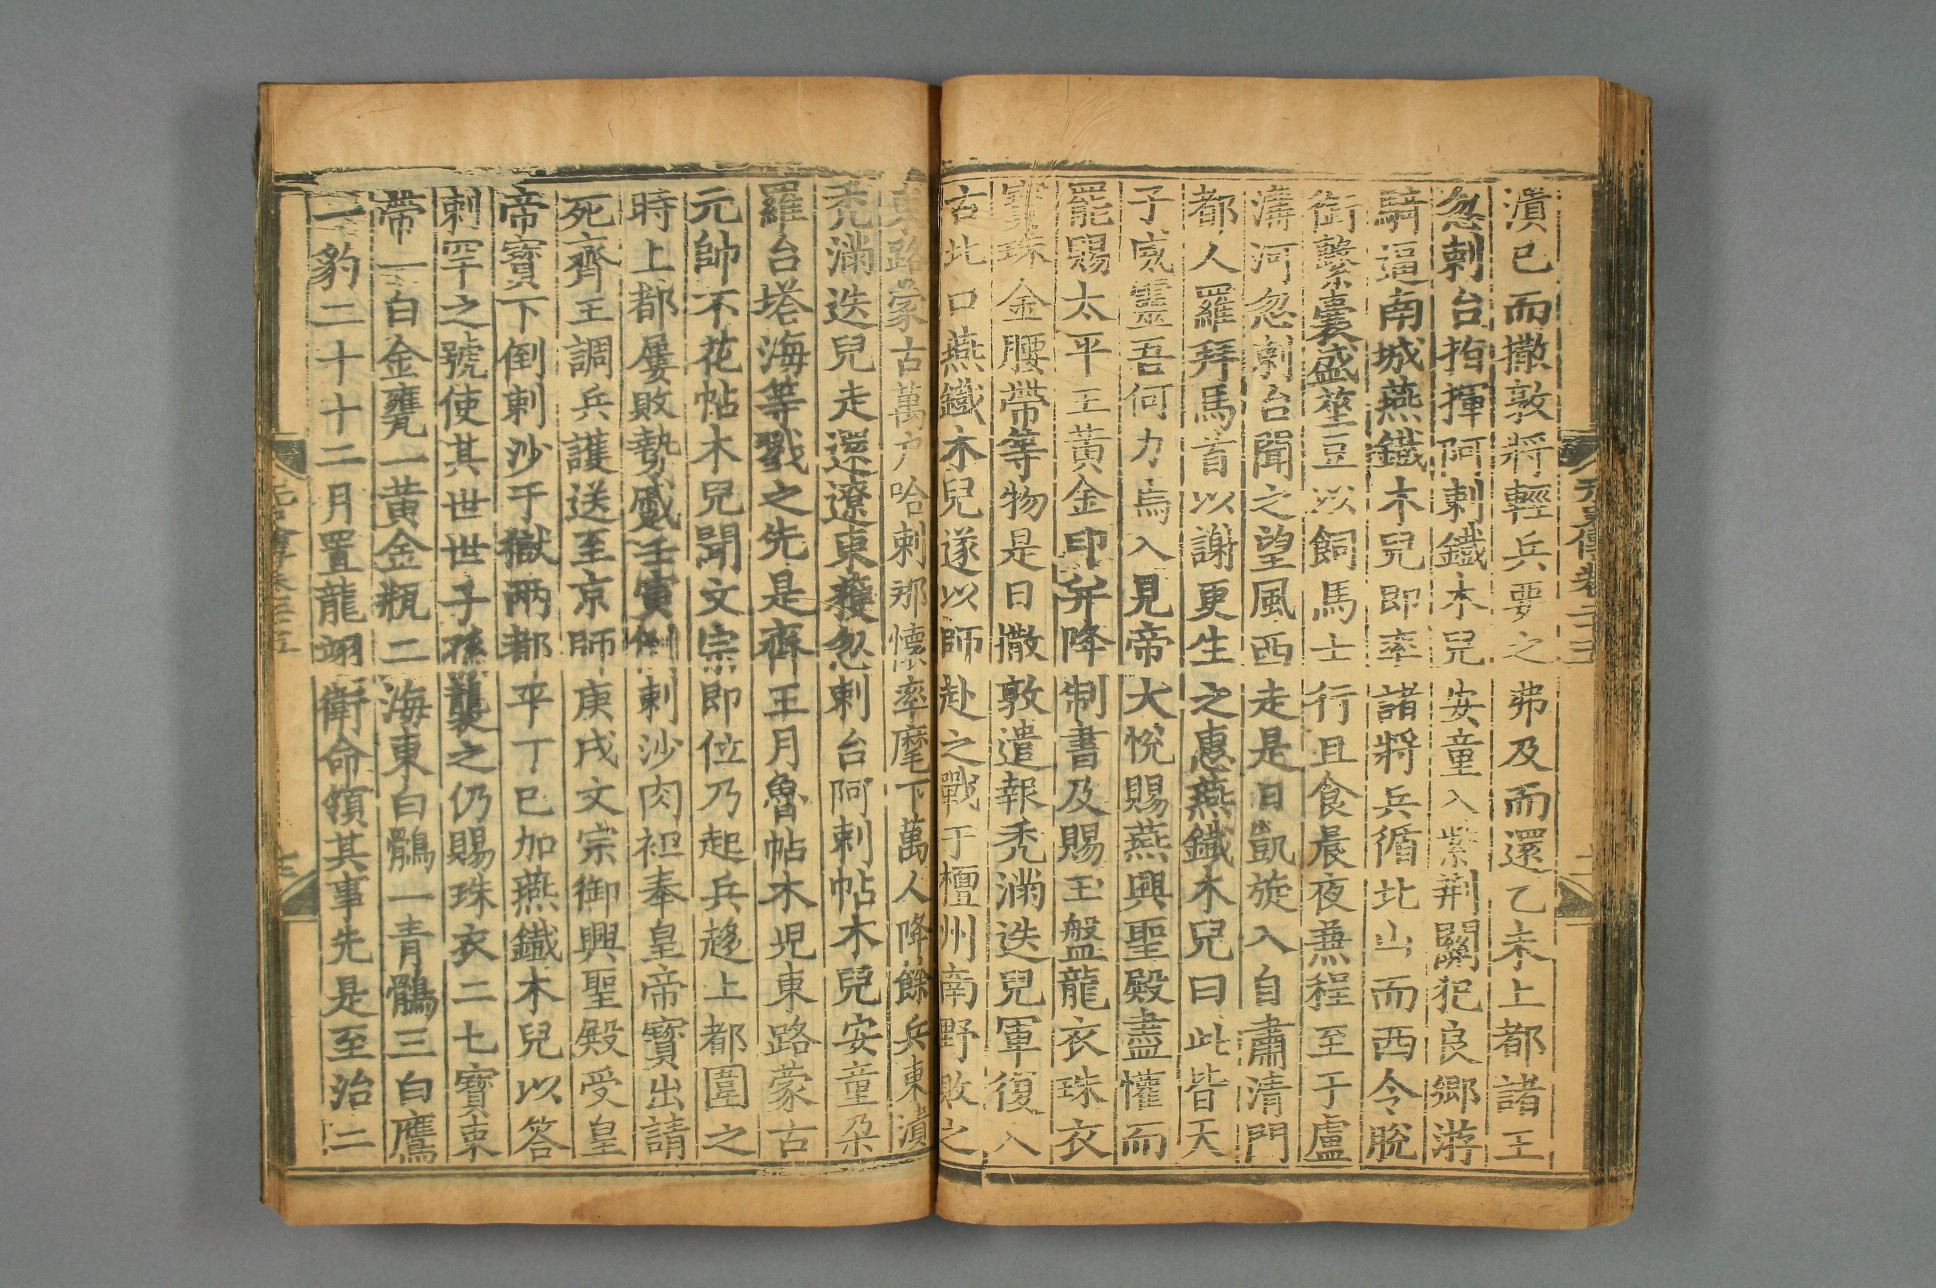 潰已而撒敦將輕兵要之弗及而還乙未上都諸王
忽剌台指揮阿剌鐵木兒安童入紫荆關犯良鄉游
騎逼南城燕鐵木兒即率諸將兵循北山而西令脫
銜繫囊盛莝豆以飼馬士行且食晨夜兼程至于盧
溝河忽剌台聞之望風西走是日凱旋入自肅清門
都人羅拜馬首以謝更生之惠燕鐵木兒曰此皆天
子威靈吾何力焉入見帝大悅賜燕興聖殿盡懽而
罷賜太平王黃金印并降制書及賜玉盤龍衣珠衣
寳珠金腰帶等物是日撒敦遣報禿滿迭兒軍復入
古北口燕鐵木兒遂以師赴之戰于檀州南野敗之
東路蒙古萬户哈剌那懷率麾下萬人降餘兵東潰
禿滿迭兒走還遼東獲忽剌台阿剌帖木兒安童朶
羅台塔海等戮之先是齊王月魯帖木児東路蒙古
元帥不花帖木兒聞文宗即位乃起兵趍上都圍之
時上都屢敗勢蹙壬寅倒剌沙肉袒奉皇帝寳出請
死齊王調兵護送至京師庚戌文宗御興聖殿受皇
帝寳下倒剌沙于獄兩都平丁巳加燕鐵木兒以答
剌罕之號使其世世子孫襲之仍賜珠衣二七寳束
帶一白金甕一黃金瓶二海東白鶻一青鶻三白鷹
一豹二十十二月置龍翊衛命領其事先是至治二